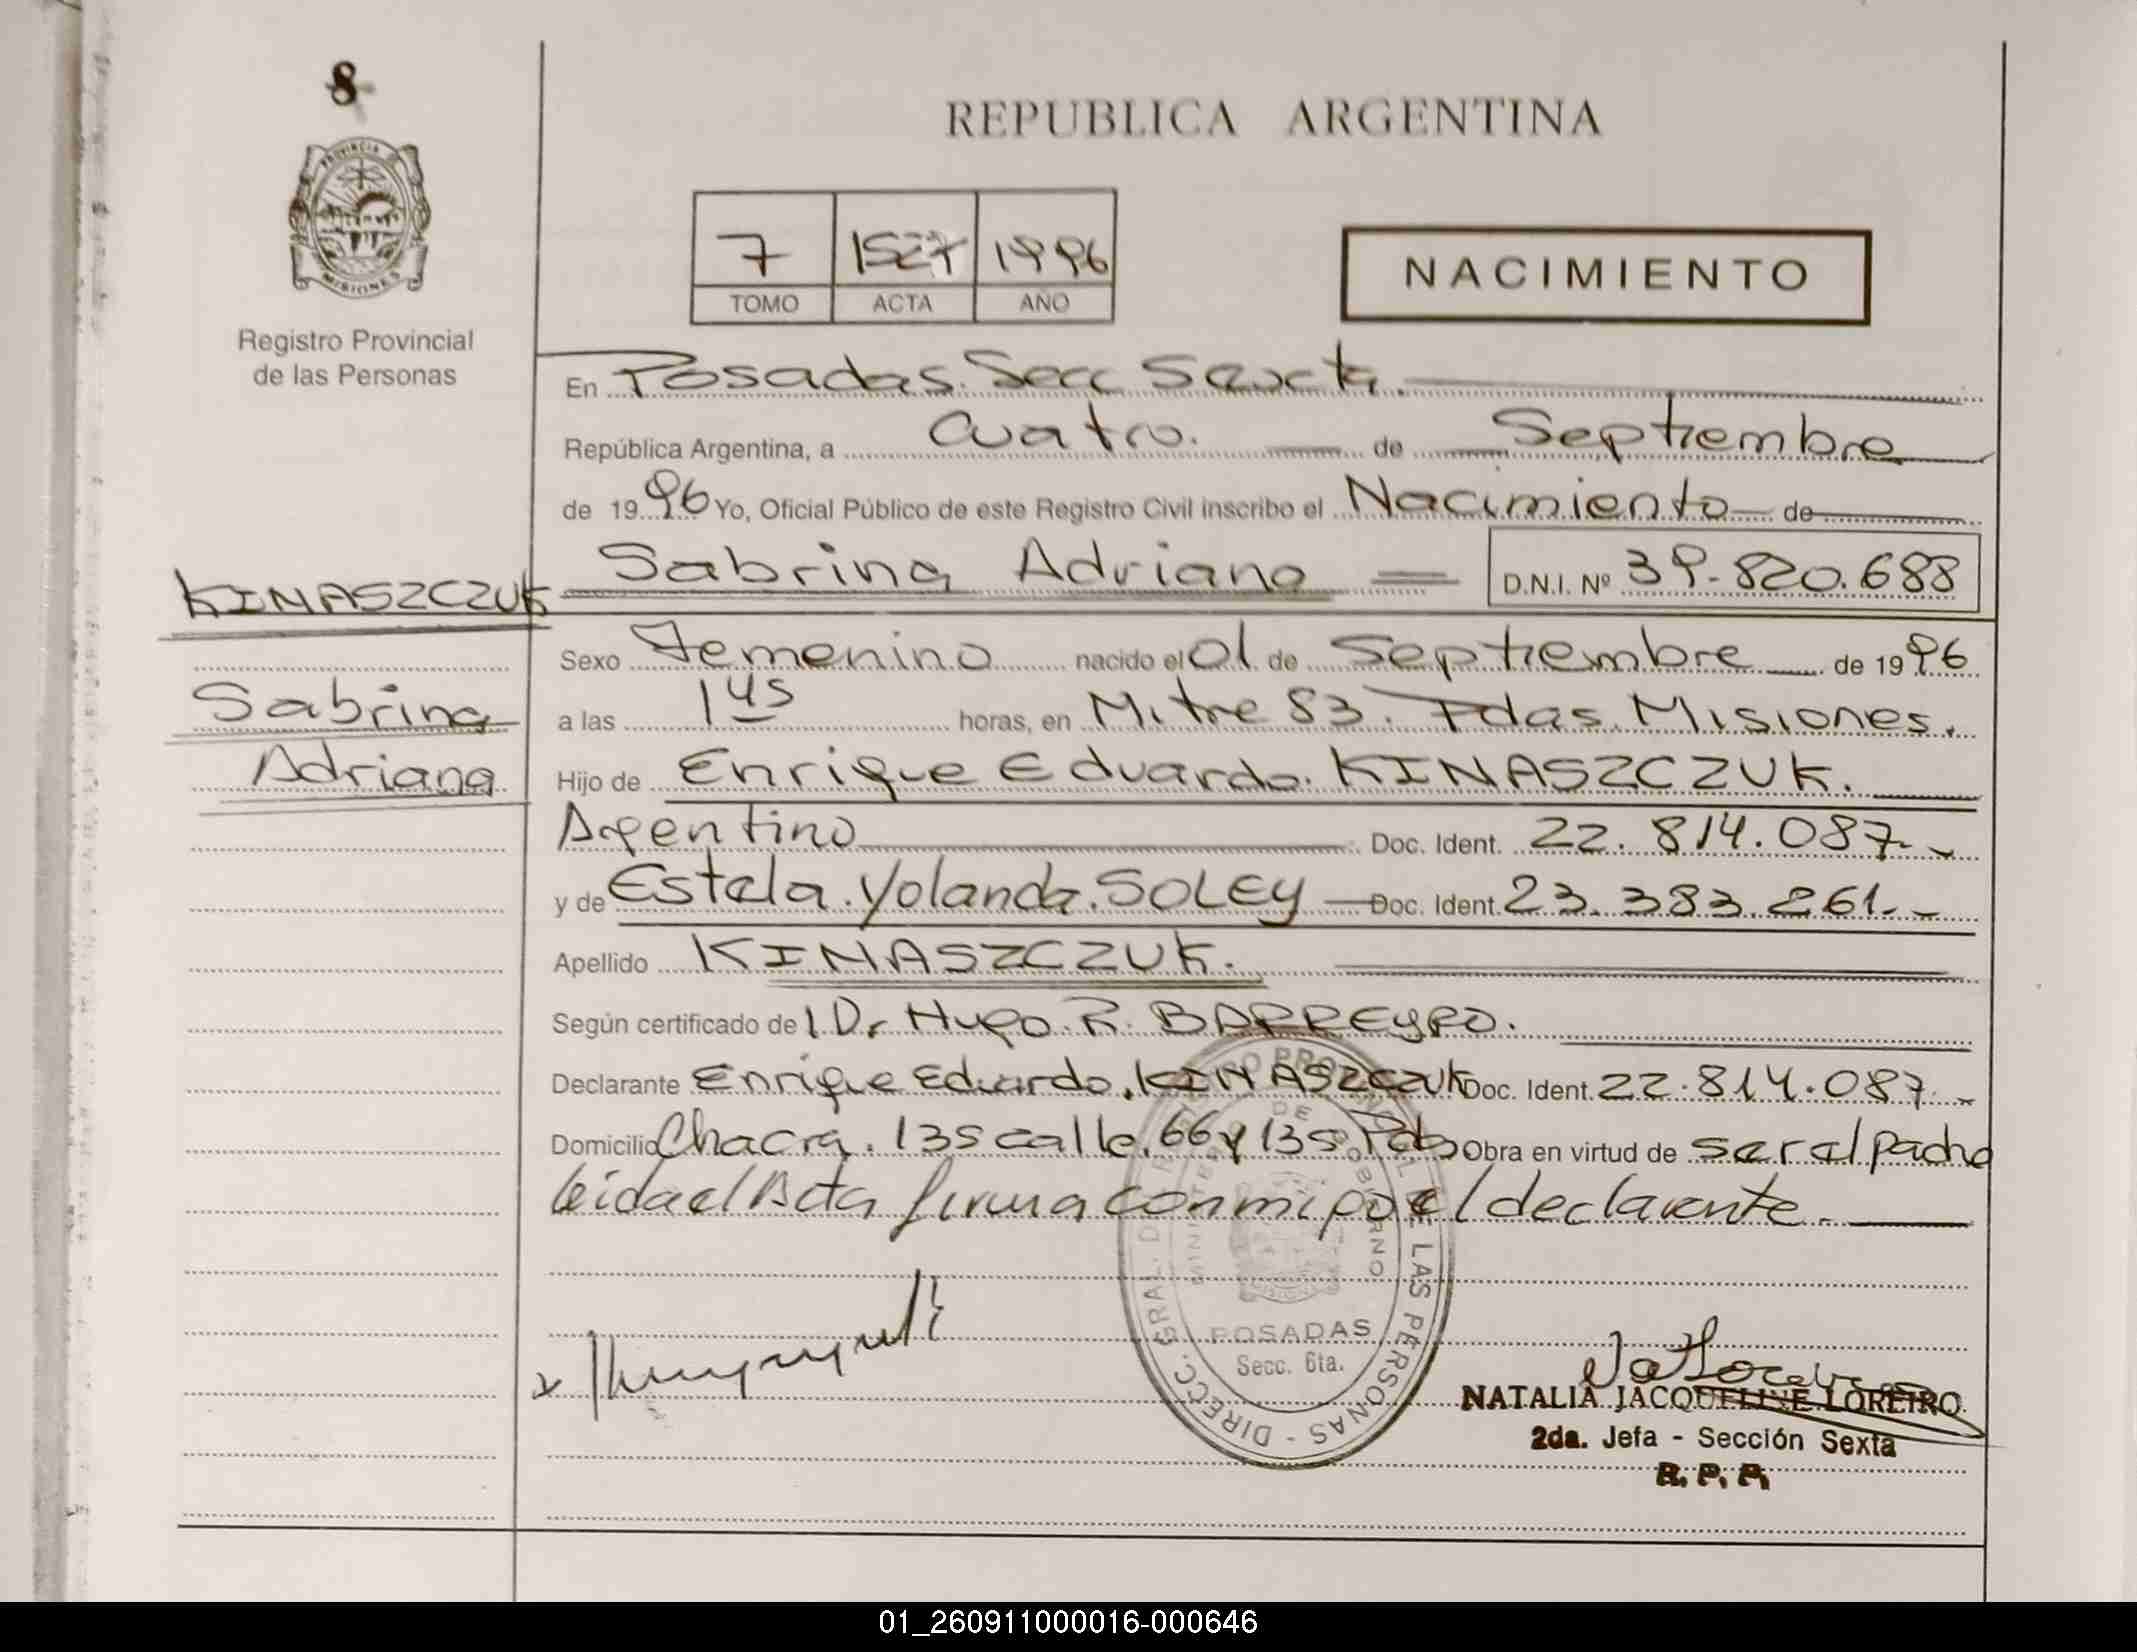 8
REPUBLICA ARGENTINA
PROVINCIA
MISIONES
7 1527 1996
TOMO ACTA AÑO
NACIMIENTO
Registro Provincial
de las Personas
En Posadas. Secc Sexta.
República Argentina, a Cuatro. de Septiembre
de 1996 Yo, Oficial Público de este Registro Civil inscribo el Nacimiento de
KINASZCZUK
Sabrina Adriana D.N.I. Nº 39.820.688
Sexo Femenino nacido el 01 de Septiembre de 1996
Sabrina
a las 1 45 horas, en Mitre 83. Pdas. Misiones.
Adriana
Hijo de Enrique Eduardo. KINASZCZUK.
Argentino Doc. Ident. 22.814.087.-
y de Estela. Yolanda. SOLEY Doc. Ident. 23.383.261.-
Apellido KINASZCZUK.
Según certificado de l Dr Hugo. R. BARREYRO.
Declarante Enrique Eduardo. KINASZCZUK Doc. Ident. 22.814.087.-
Domicilio Chacra. 135 calle. 66 y 135 Pdas Obra en virtud de ser el padre
leida el Acta firma conmigo el declarante.
DIRECC. GRAL. DE PROVINCIAL DE LAS PERSONAS
MINISTERIO DE GOBIERNO
MISIONES
POSADAS
Secc. 6ta.
NATALIA JACQUELINE LOREIRO
2da. Jefa - Sección Sexta
R. P. P.
01_260911000016-000646